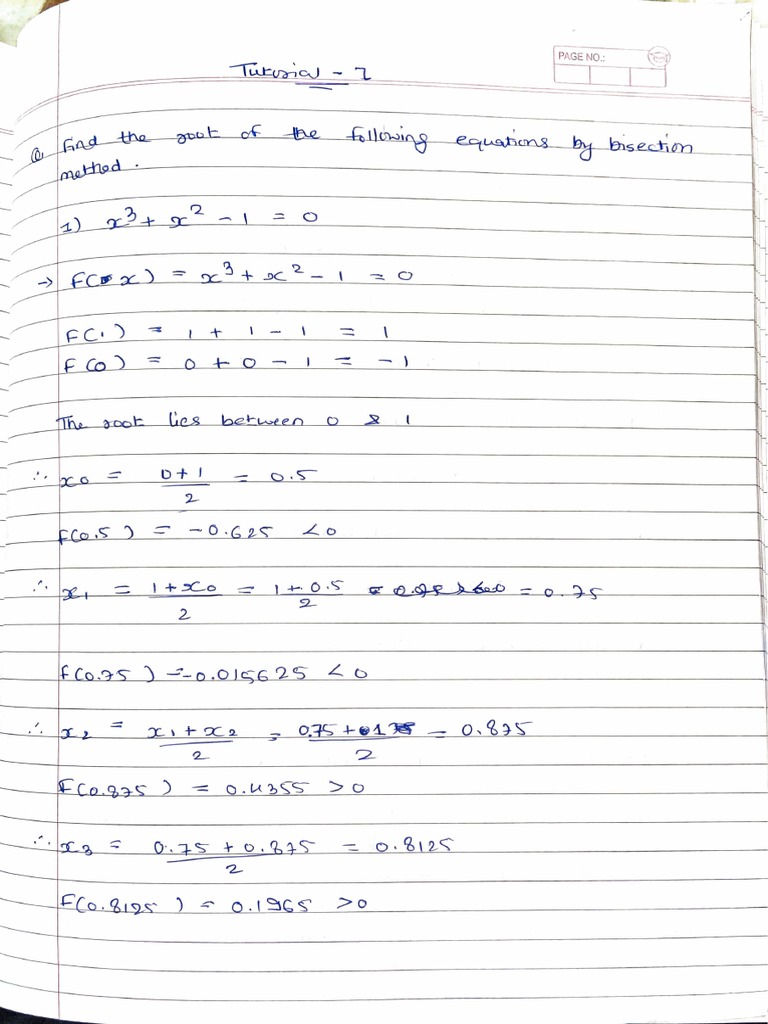 Tutorial - 1
PAGE NO.:
Q Find the root of the following equations by bisection
method.
1) x³ + x² - 1 = 0
→ F(x) = x³ + x² - 1 = 0
F(1) = 1 + 1 - 1 = 1
F(0) = 0 + 0 - 1 = -1
The root lies between 0 & 1
∴ x0 = (0+1)/2 = 0.5
F(0.5) = -0.625 <0
∴ x1 = (1+x0)/2 = (1+0.5)/2 = 0.75
F(0.75) = -0.015625 <0
∴ x2 = (x1+x2)/2 = (0.75+1)/2 = 0.875
F(0.875) = 0.4355 >0
∴ x3 = (0.75+0.875)/2 = 0.8125
F(0.8125) = 0.1965 >0